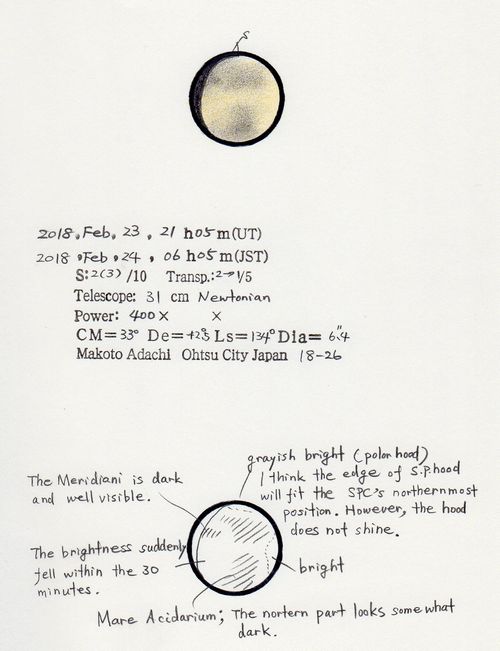 S
2018, Feb, 23, 21 h05m(UT)
2018, Feb, 24, 06 h05m(JST)
S: 2(3) /10 Transp.: 2→1/5
Telescope: 31 cm Newtonian
Power: 400× ×
CM=33° De=+2°.5 Ls=134° Dia= 6".4
Makoto Adachi Ohtsu City Japan 18-26
grayish bright (polar hood)
I think the edge of S.P.hood
will fit the SPC's northernmost
position. However, the hood
does not shine.
The Meridiani is dark
and well visible.
The brightness suddenly
fell within the 30
minutes.
bright
Mare Acidarium; The nortern part looks somewhat
dark.